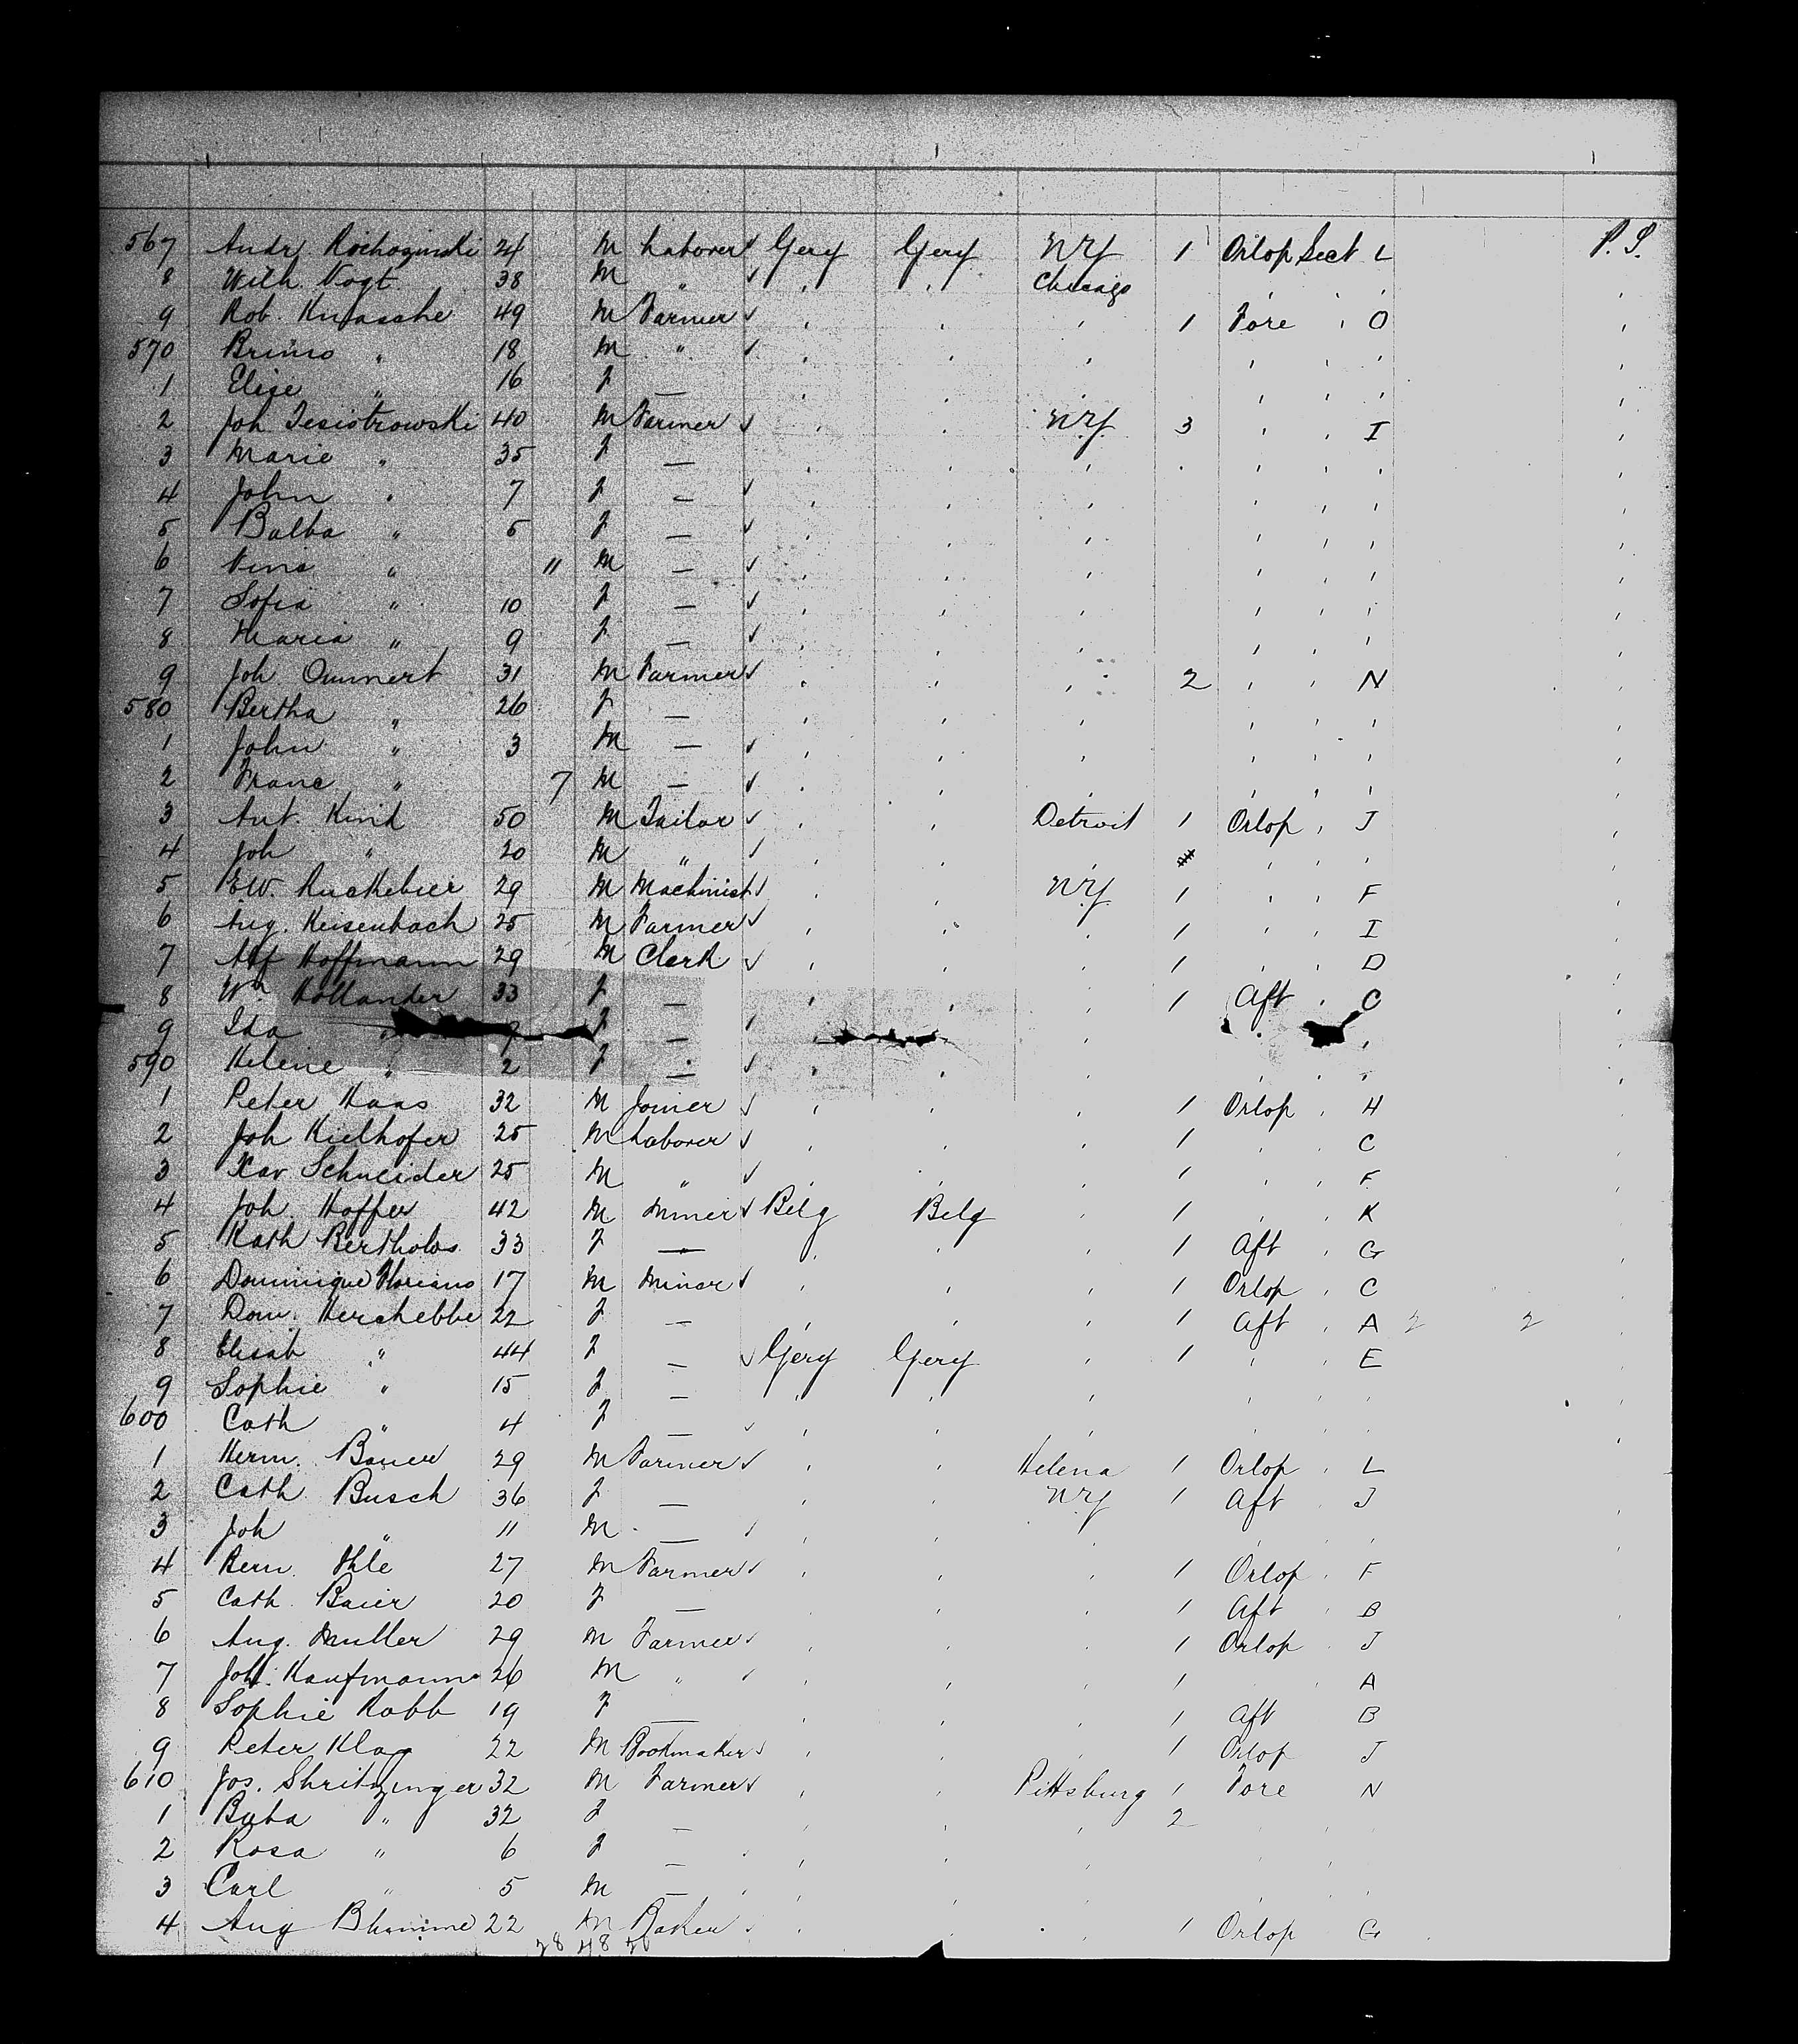 567 Andr. Kochozinski 24 M Laborer ✓ Gery Gery N.Y. 1 Orlop Sect L P.S.
8 Wilh. Vogt 38 M " ✓ ' ' Chicago ' ' '
9 Rob. Knasche 49 M Farmer ✓ ' ' ' 1 Fore ' O '
570 Bruno " 18 M " ✓ ' ' ' ' ' ' '
1 Elise " 16 F — ' ' ' ' ' ' '
2 Joh. Tesiotrowski 40 M Farmer ✓ ' ' N.Y. 3 ' ' I '
3 Marie " 35 F — ' ' ' ' ' ' '
4 John " 7 F — ✓ ' ' ' ' ' ' '
5 Balba " 5 F — ✓ ' ' ' ' ' ' '
6 " 11 M — ✓ ' ' ' ' ' ' '
7 Sofia " 10 F — ✓ ' ' ' ' ' ' '
8 Maria " 9 F — ✓ ' ' ' ' ' ' '
9 Joh. Ommert 31 M Farmer ✓ ' ' ' 2 ' ' N '
580 Bertha " 26 F — ' ' ' ' ' ' '
1 John " 3 M — ✓ ' ' ' ' ' ' '
2 Franc " 7 M — ✓ ' ' ' ' ' ' '
3 Ant. Kind 50 M Tailor ✓ ' ' Detroit 1 Orlop ' J '
4 Joh " 20 M " ✓ ' ' ' ' ' ' '
5 E.W. Kuckebier 29 M Machinist ✓ ' ' N.Y. 1 ' ' F '
6 Aug. Keisenbach 25 M Farmer ✓ ' ' ' 1 ' ' I '
7 Alf Hoffmann 29 M Clerk ✓ ' ' ' 1 ' ' D '
8 Wm. Hollander 33 F — ' ' ' 1 Aft ' C '
9 Ida " 7 F — ' ' ' '
590 Helene " 2 F — ✓ ' ' ' ' ' ' '
1 Peter Haas 32 M Joiner ✓ ' ' ' 1 Orlop ' H '
2 Joh Kielhofer 25 M Laborer ✓ ' ' ' 1 ' ' C '
3 Xav Schneider 25 M " ✓ ' ' ' 1 ' ' F '
4 Joh. Hoffer 42 M Miner ✓ Belg Belg ' 1 ' ' K '
5 Kath Bertholos 33 F — ' ' ' 1 Aft ' G '
6 Dominique 17 M Minor ✓ ' ' ' 1 Orlop ' C '
7 Dom. Kerchebbe 22 F — ' ' ' 1 Aft ' A 2 2 '
8 Elisab " 44 F — ✓ Gery Gery ' 1 ' ' E '
9 Sophie " 15 F — ' ' ' ' ' ' '
600 Cath " 4 F — ✓ ' ' ' ' ' ' '
1 Herm. Bauer 29 M Farmer ✓ ' ' Helena 1 Orlop ' L '
2 Cath Busch 36 F — ' ' N.Y. 1 Aft ' J '
3 Joh " 11 M — ✓ ' ' ' ' ' ' '
4 Herm. Ihle 27 M Farmer ✓ ' ' ' 1 Orlop ' F
5 Cath. Baier 20 F — ' ' ' 1 Aft ' B
6 Aug. Muller 29 M Farmer ✓ ' ' ' 1 Orlop ' J
7 Joh. Kaufmann 26 M " ✓ ' ' ' 1 ' A
8 Sophie Kobb 19 F — ' ' ' 1 Aft B
9 Peter Klag 22 M Bookmaker ✓ ' ' ' 1 Orlop J
610 Jos. Shritzinger 32 M Farmer ✓ ' ' Pittsburg 1 Fore N
1 Baba " 32 F — ' ' ' 2 ' ' '
2 Rosa " 6 F — ' ' ' ' ' '
3 Carl " 5 M — ' ' ' ' ' ' '
4 Aug 22 M Baker ✓ ' ' ' 1 Orlop G
28 48 20